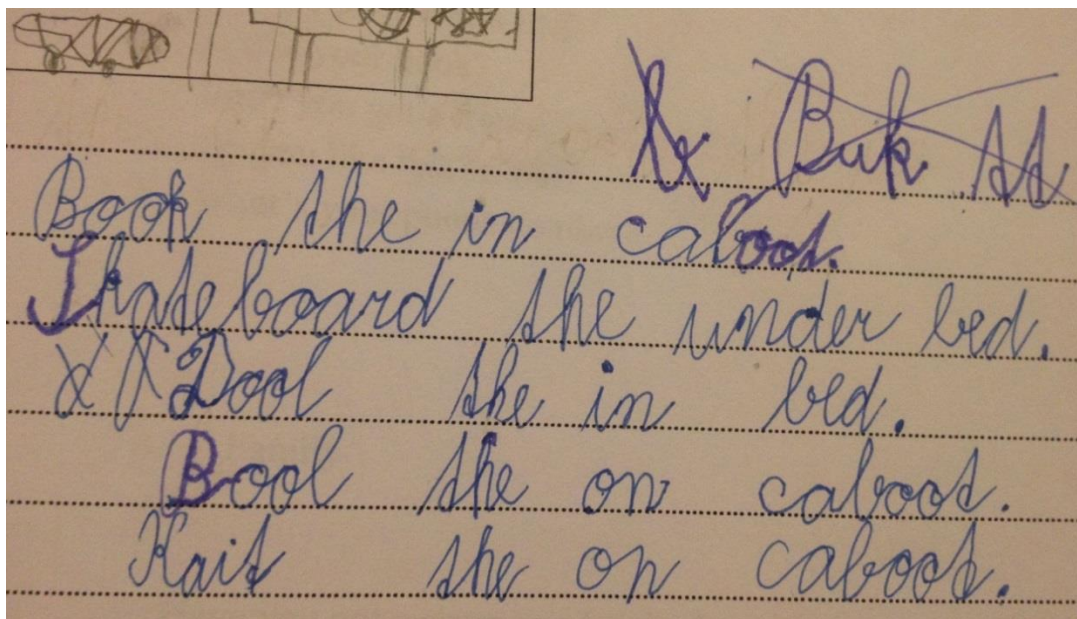 Buk
Book the in caboot.
Skateboard the under bed.
Dool the in bed.
Bool the on caboot.
Kait the on caboot.